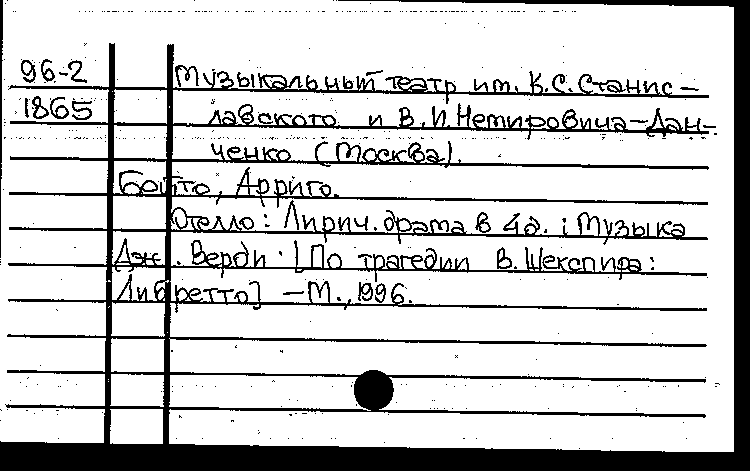 96-2 Музыкальный театр им. К.С.Станис-
1865 лавского и В.И.Немировича-Дан-
ченко (Москва).
Бойто, Арриго.
Отелло: Лирич. драма в 4д. ; Музыка
Дж. Верди : [По трагедии В.Шекспира:
Либретто] -М., 1996.